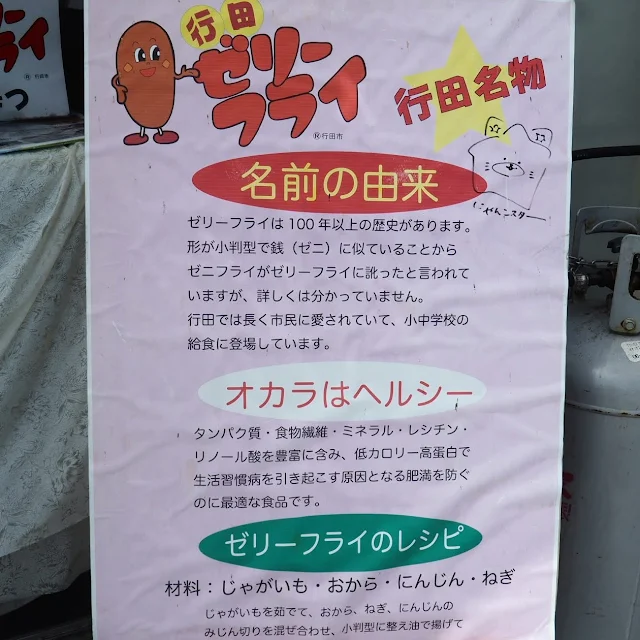 行田
ゼリー
フライ
®行田市
行田名物
名前の由来
にゃんスター
ゼリーフライは100年以上の歴史があります。
形が小判型で銭（ゼニ）に似ていることから
ゼニフライがゼリーフライに訛ったと言われて
いますが、詳しくは分かっていません。
行田では長く市民に愛されていて、小中学校の
給食に登場しています。
オカラはヘルシー
タンパク質・食物繊維・ミネラル・レシチン・
リノール酸を豊富に含み、低カロリー高蛋白で
生活習慣病を引き起こす原因となる肥満を防ぐ
のに最適な食品です。
ゼリーフライのレシピ
材料：じゃがいも・おから・にんじん・ねぎ
じゃがいもを茹でて、おから、ねぎ、にんじんの
みじん切りを混ぜ合わせ、小判型に整え油で揚げて